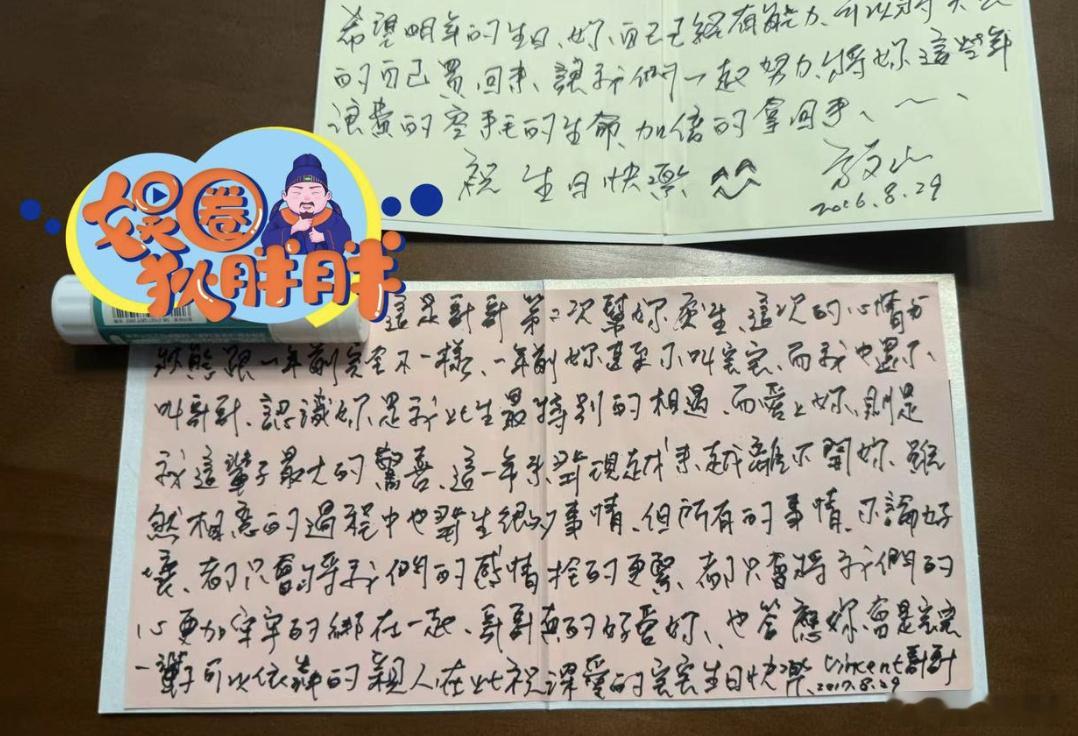 希望明年的生日、妳自己已經有能力、可以將失去
的自己買回來、讓我們一起努力、將妳這些年
浪費的寒毛的生命、加倍的拿回來、~、
祝 生日快樂 ^^
2016.8.29
娱圈
狄胖胖
這是哥哥第二次幫妳慶生、這次的心情與
狀態跟一年前完全不一樣、一年前妳甚至不叫宝宝、而我也還不
叫哥哥、認識妳是我此生最特別的相遇、而愛上妳、則是
我這輩子最大的驚喜、這一年來發現越來越離不開妳、雖
然相戀的過程中也發生很多事情、但所有的事情、不論好
壞、都只會將我們的感情拴的更緊、都只會將我們的
心更加牢牢的綁在一起、哥哥真的好愛妳、也答應妳會是宝宝
一輩子可以依靠的親人在此祝深愛的宝宝生日快樂、Vincent哥哥
2017.8.29